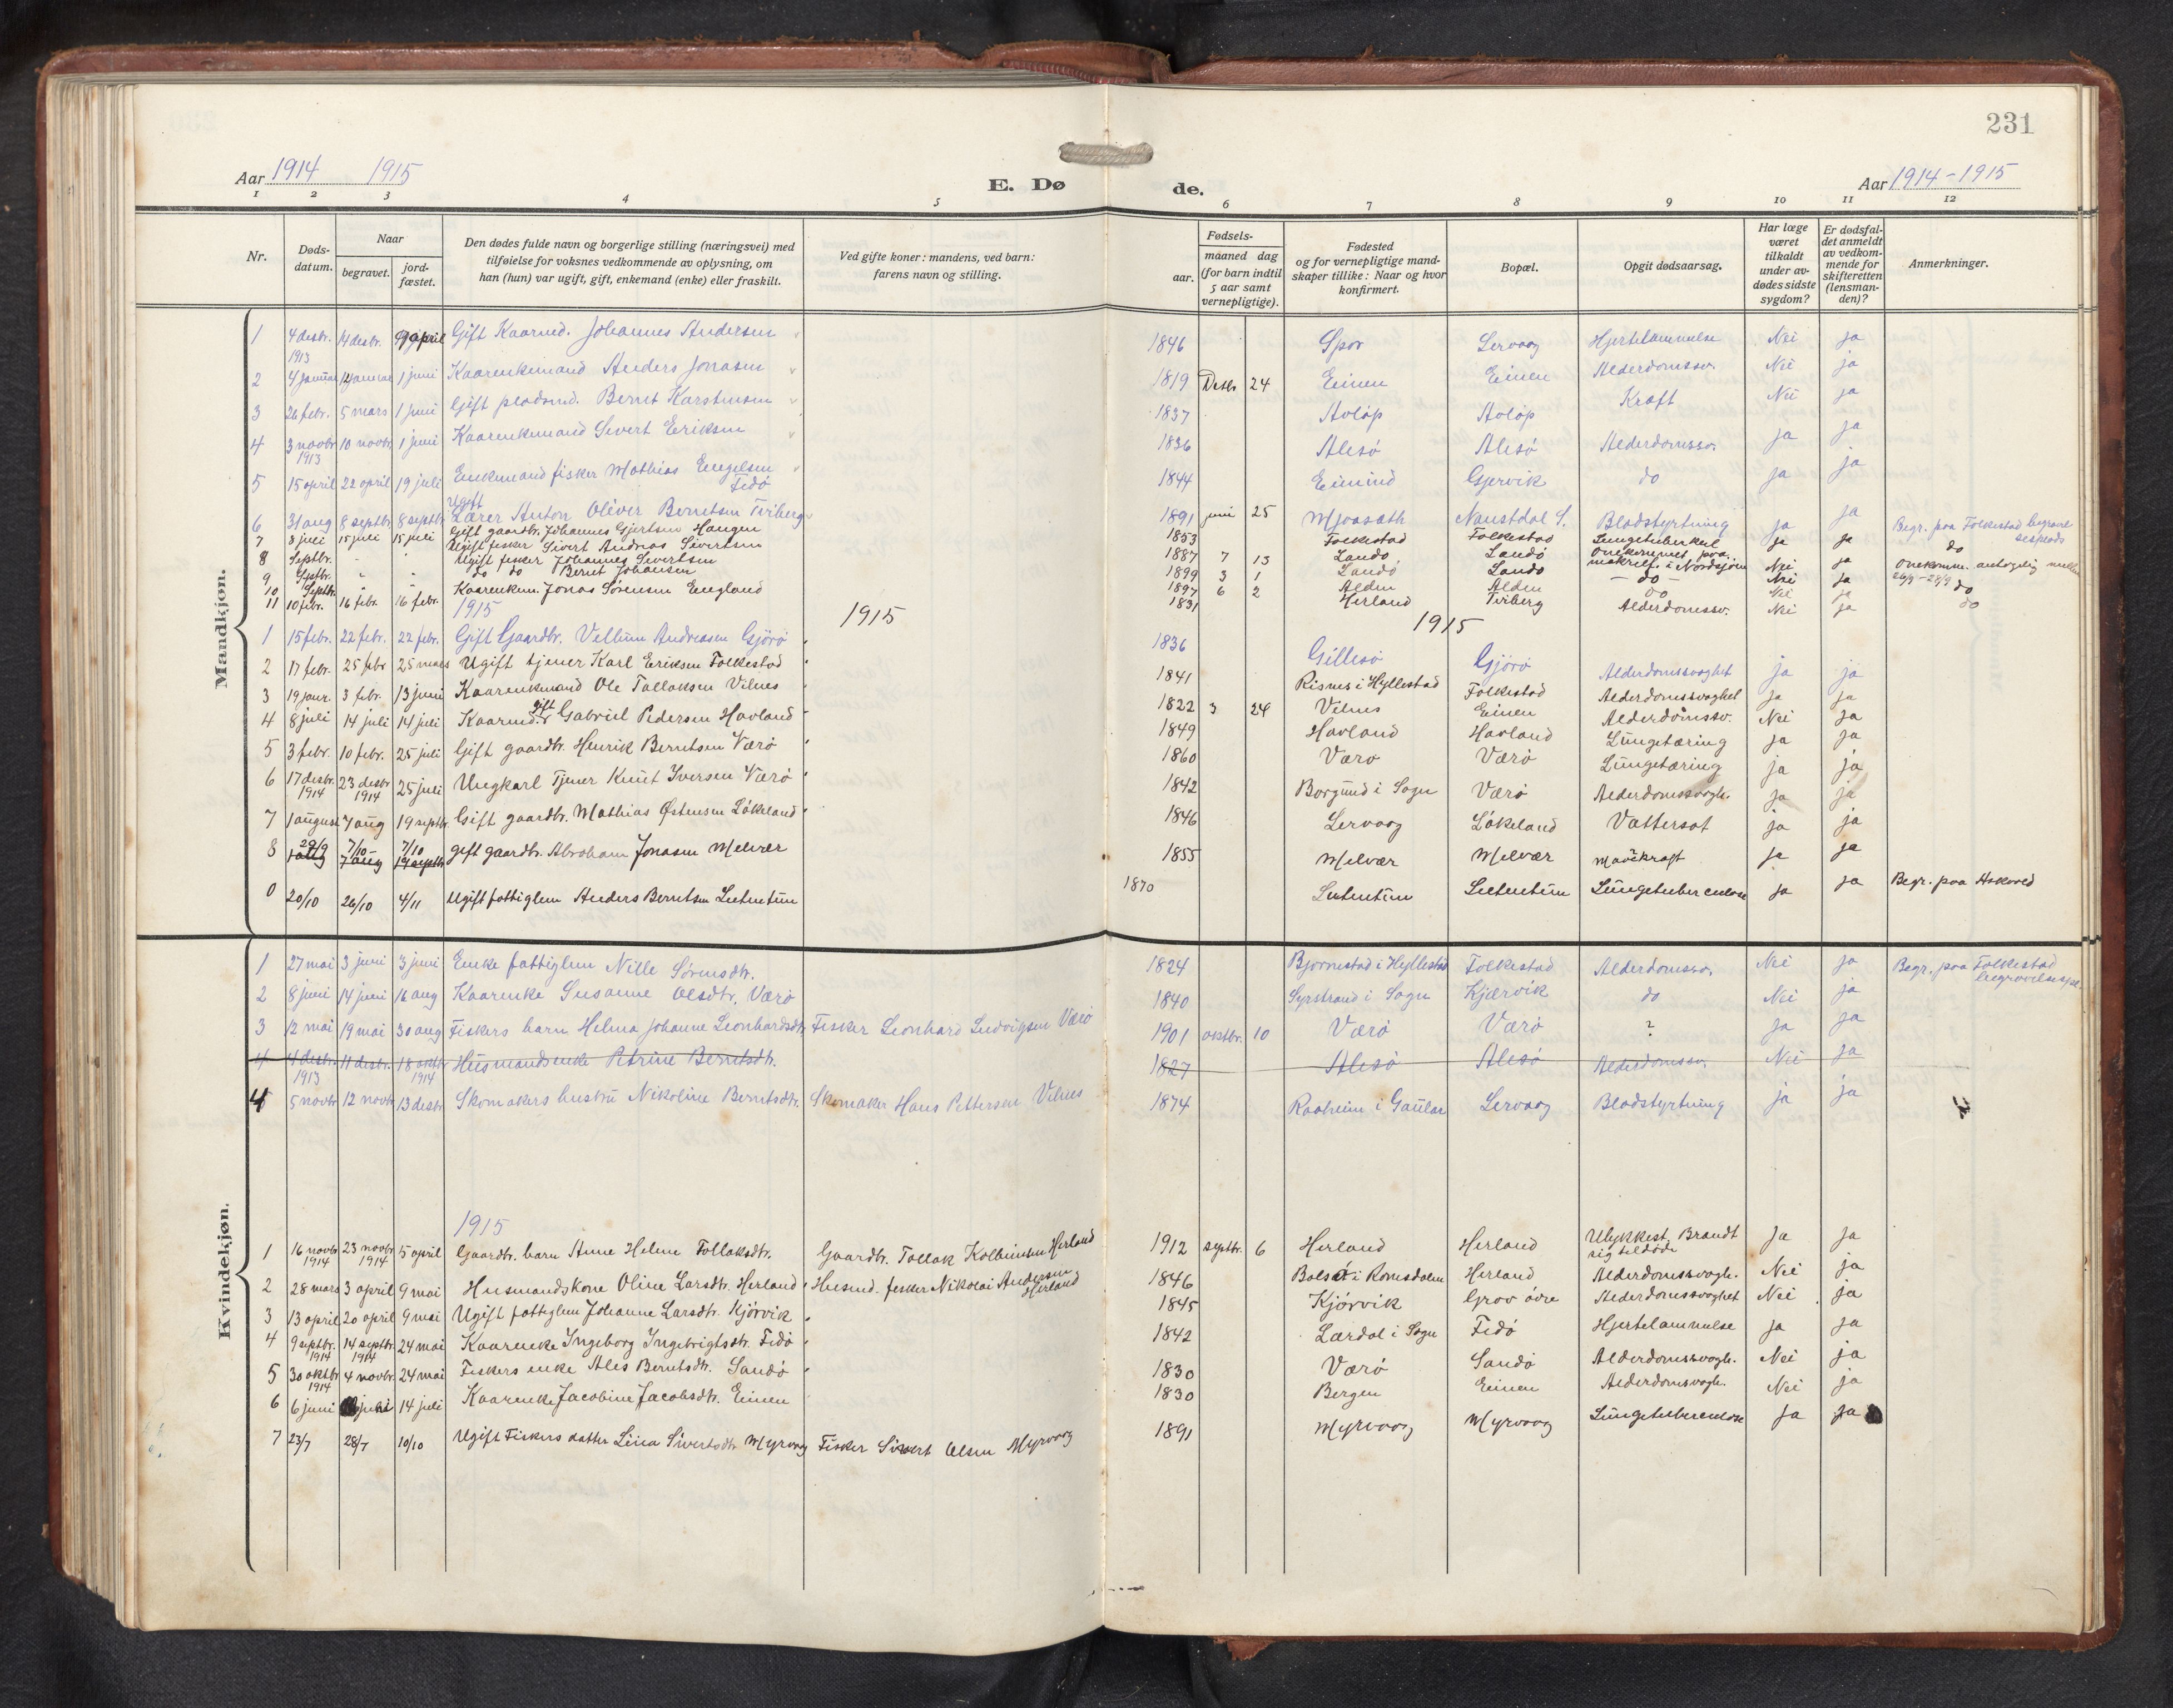 231
Aar 1914 1915
E. Døde.
Aar 1914-1915
1 2 3 4 5 6 7 8 9 10 11 12
Nr.
Døds-datum.
Naar
begravet.
jord-fæstet.
Den dødes fulde navn og borgerlige stilling (næringsvei) med
tilføielse for voksnes vedkommende av oplysning, om
han (hun) var ugift, gift, enkemand (enke) eller fraskilt.
Ved gifte koner: mandens, ved barn:
farens navn og stilling.
Fødsels-
aar. maaned dag
(for barn indtil
5 aar samt
vernepligtige).
Fødested
og for vernepligtige mand-
skaper tillike: Naar og hvor
konfirmert.
Bopæl.
Opgit dødsaarsag.
Har læge
været
tilkaldt
under av-
dødes sidste
sygdom?
Er dødsfal-
det anmeldt
av vedkom-
mende for
skifteretten
(lensman-
den)?
Anmerkninger.
Mandkjøn.
1 4 desbr. 1913 14 desbr. april Gift Kaarmd. Johannes Andersen 1846 Spor Lervaag Hjertelammelse Nei ja
2 4 januar 12 januar 1 juni Kaarenkemand Anders Jonasen 1819 Desbr 24 Einen Einen Alderdomssv. Nei ja
3 26 febr. 5 mars 1 juni Gift pladsmd. Bernt Karstensen 1837 Avløp Avløp Kræft Nei ja
4 3 novbr 1913 10 novbr. 1 juni Kaarenkemand Sivert Eriksen 1836 Alesö Alesö Alderdomssv. ja ja
5 15 april 22 april 19 juli Enkemand fisker Mathias Engelsen Fedö 1844 Gjervik do ja ja
6 31 aug 8 septbr 8 septbr Ugift Lærer Anton Oliver Berntsen Tviberg 1891 juni 25 Naustdal S. Blodstyrtning ja ja
7 3 juli 15 juli 15 juli Gift gaardbr. Johannes Gjertsen Haugen 1853 Folkestad Folkestad Lungetuberkul ja ja Begr. paa Folkestad
8 Septbr. - - Ugift fisker Sivert Andreas Sivertsen 1887 7 13 Landö Landö Omkommet paa makrelf. i Nordsjøen Nei ja do
9 Septbr. " " Ugift fisker Johannes Sivertsen 1899 3 1 Landö Landö - do - Nei ja Omkomm. antagelig mellem 26/9 - 28/9
10 Septbr. " " do do Bernt Johansen 1897 6 2 Alden Alden do Nei ja do
11 10 febr. 16 febr. 16 febr. Kaarenkem. Jonas Sörensen England 1831 Herland Tviberg Alderdomssv. Nei ja do
1915 1915 1915
1 15 febr. 22 febr. 22 febr. Gift Gaardbr. Vellum Andreasen Gjörö 1836 Gillesö Gjörö Alderdomssvaghet ja ja
2 17 febr. 25 febr 25 mars Ugift tjener Karl Eriksen Folkestad 1841 Risnes i Hyllestad Folkestad Alderdomssvaghet ja ja
3 19 janr. 3 febr. 13 juni Kaarenkemand Ole Tollaksen Vilnes 1822 3 24 Vilnes Einen Alderdomssv. Nei ja
4 8 juli 14 juli 14 juli Kaarmd. gift Gabriel Pedersen Havland 1849 Havland Havland Lungetæring ja ja
5 3 febr. 10 febr. 25 juli Gift gaardbr. Henrik Berntsen Værö 1860 Værö Værö Lungetæring ja ja
6 17 desbr. 1914 23 desbr 1914 25 juli Ungkarl Tjener Knut Iversen Værö 1842 Borgund i Sogn Værö Alderdomssvagh. ja ja
7 1 august 7 aug 19 septbr. Gift gaardbr. Mathias Østensen Lökeland 1846 Lervaag Lökeland Vattersot ja ja
8 29/9 1 aug 7/10 7 aug 7/10 19 septbr gift gaardbr. Abraham Jonasen Melvær 1855 Melvær Melvær Mavekræft ja ja
0 20/10 26/10 4/11 Ugift fattiglem Anders Berntsen Lutentun 1870 Lutentun Lutentun Lungetuberculose ja ja Begr. paa Askvold
Kvindekjøn.
1 27 mai 3 juni 3 juni Enke fattiglem Nille Sörensdtr. 1824 Bjørnestad i Hyllestad Folkestad Alderdomssv. Nei ja Begr. paa Folkestad begravelsespl.
2 8 juni 14 juni 16 aug Kaarenke Susanne Olsdtr. Værö 1840 Syrstrand i Sogn Kjærvik do Nei ja
3 12 mai 19 mai 30 aug Fiskers barn Helma Johanne Leonhardsdtr. Fisker Leonhard Ludvigsen Værö 1901 oktbr. 10 Værö Værö ? ja ja
4 4 desbr. 1913 11 desbr. 18 oktbr 1914 Husmandsenke Petrine Berntsdtr. 1827 Alesö Alesö Alderdomssv. Nei ja
4 5 novbr 12 novbr 13 desbr Skomakers hustru Nikoline Berntsdtr. Skomaker Hans Pettersen Vilnes 1874 Raaheim i Gaular Lervaag Blodstyrtning ja ja
1915
1 16 novbr 1914 23 novbr 1914 5 april Gaardbr. barn Anne Helene Tollaksdtr. Gaardbr. Tollak Kolbeinsen Herland 1912 septbr. 6 Herland Herland Ulykkest. Brandt sig tildöde Ja Ja
2 28 mars 3 april 9 mai Husmandskone Oline Larsdtr. Herland Husmd. fisker Nikolai Andersen Herland 1846 Bolsö i Romsdalen Herland Alderdomssvagh. Nei ja
3 13 april 20 april 9 mai Ugift fattiglem Johanne Larsdtr. Kjörvik 1845 Kjörvik Grov övre Alderdomssvaghet Nei ja
4 9 septbr. 1914 14 septbr. 1914 24 mai Kaarenke Ingeborg Ingebrigtsdtr. Fedö 1842 Lærdal i Sogn Fedö Hjertelammelse ja ja
5 30 oktbr 1914 4 novbr. 24 mai Fiskers enke Ales Berntsdtr. Sandö 1830 Værö Sandö Alderdomssvagh. Nei ja
6 6 juni juni 14 juli Kaarenke Jacobine Jacobsdtr. Einen 1830 Bergen Einen Alderdomsvagh. Nei ja
7 23/7 28/7 10/10 Ugift Fiskers datter Lina Sivertsdtr Myrvaag Fisker Sivert Olsen Myrvaag 1891 Myrvaag Myrvaag Lungetuberculose Ja ja